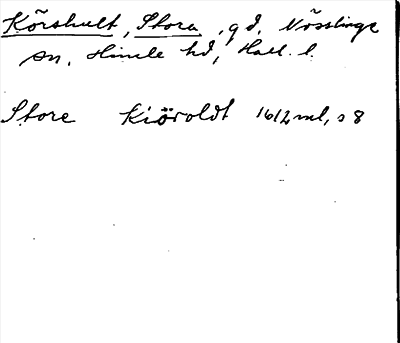 Körshult, Stora, gd, Nösslinge
sn, Himle hd, Hall. l.
Store Kiöroldt 1612 ml, s 8